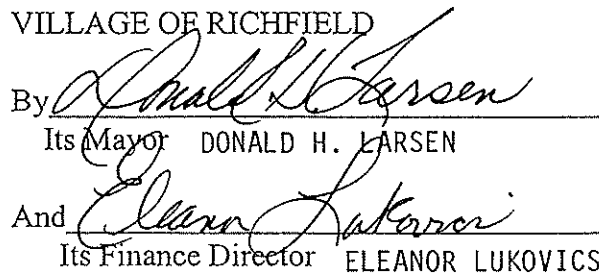 VILLAGE OF RICHFIELD
By Donald H. Larsen
Its Mayor DONALD H. LARSEN
And Eleanor Lukovics
Its Finance Director ELEANOR LUKOVICS